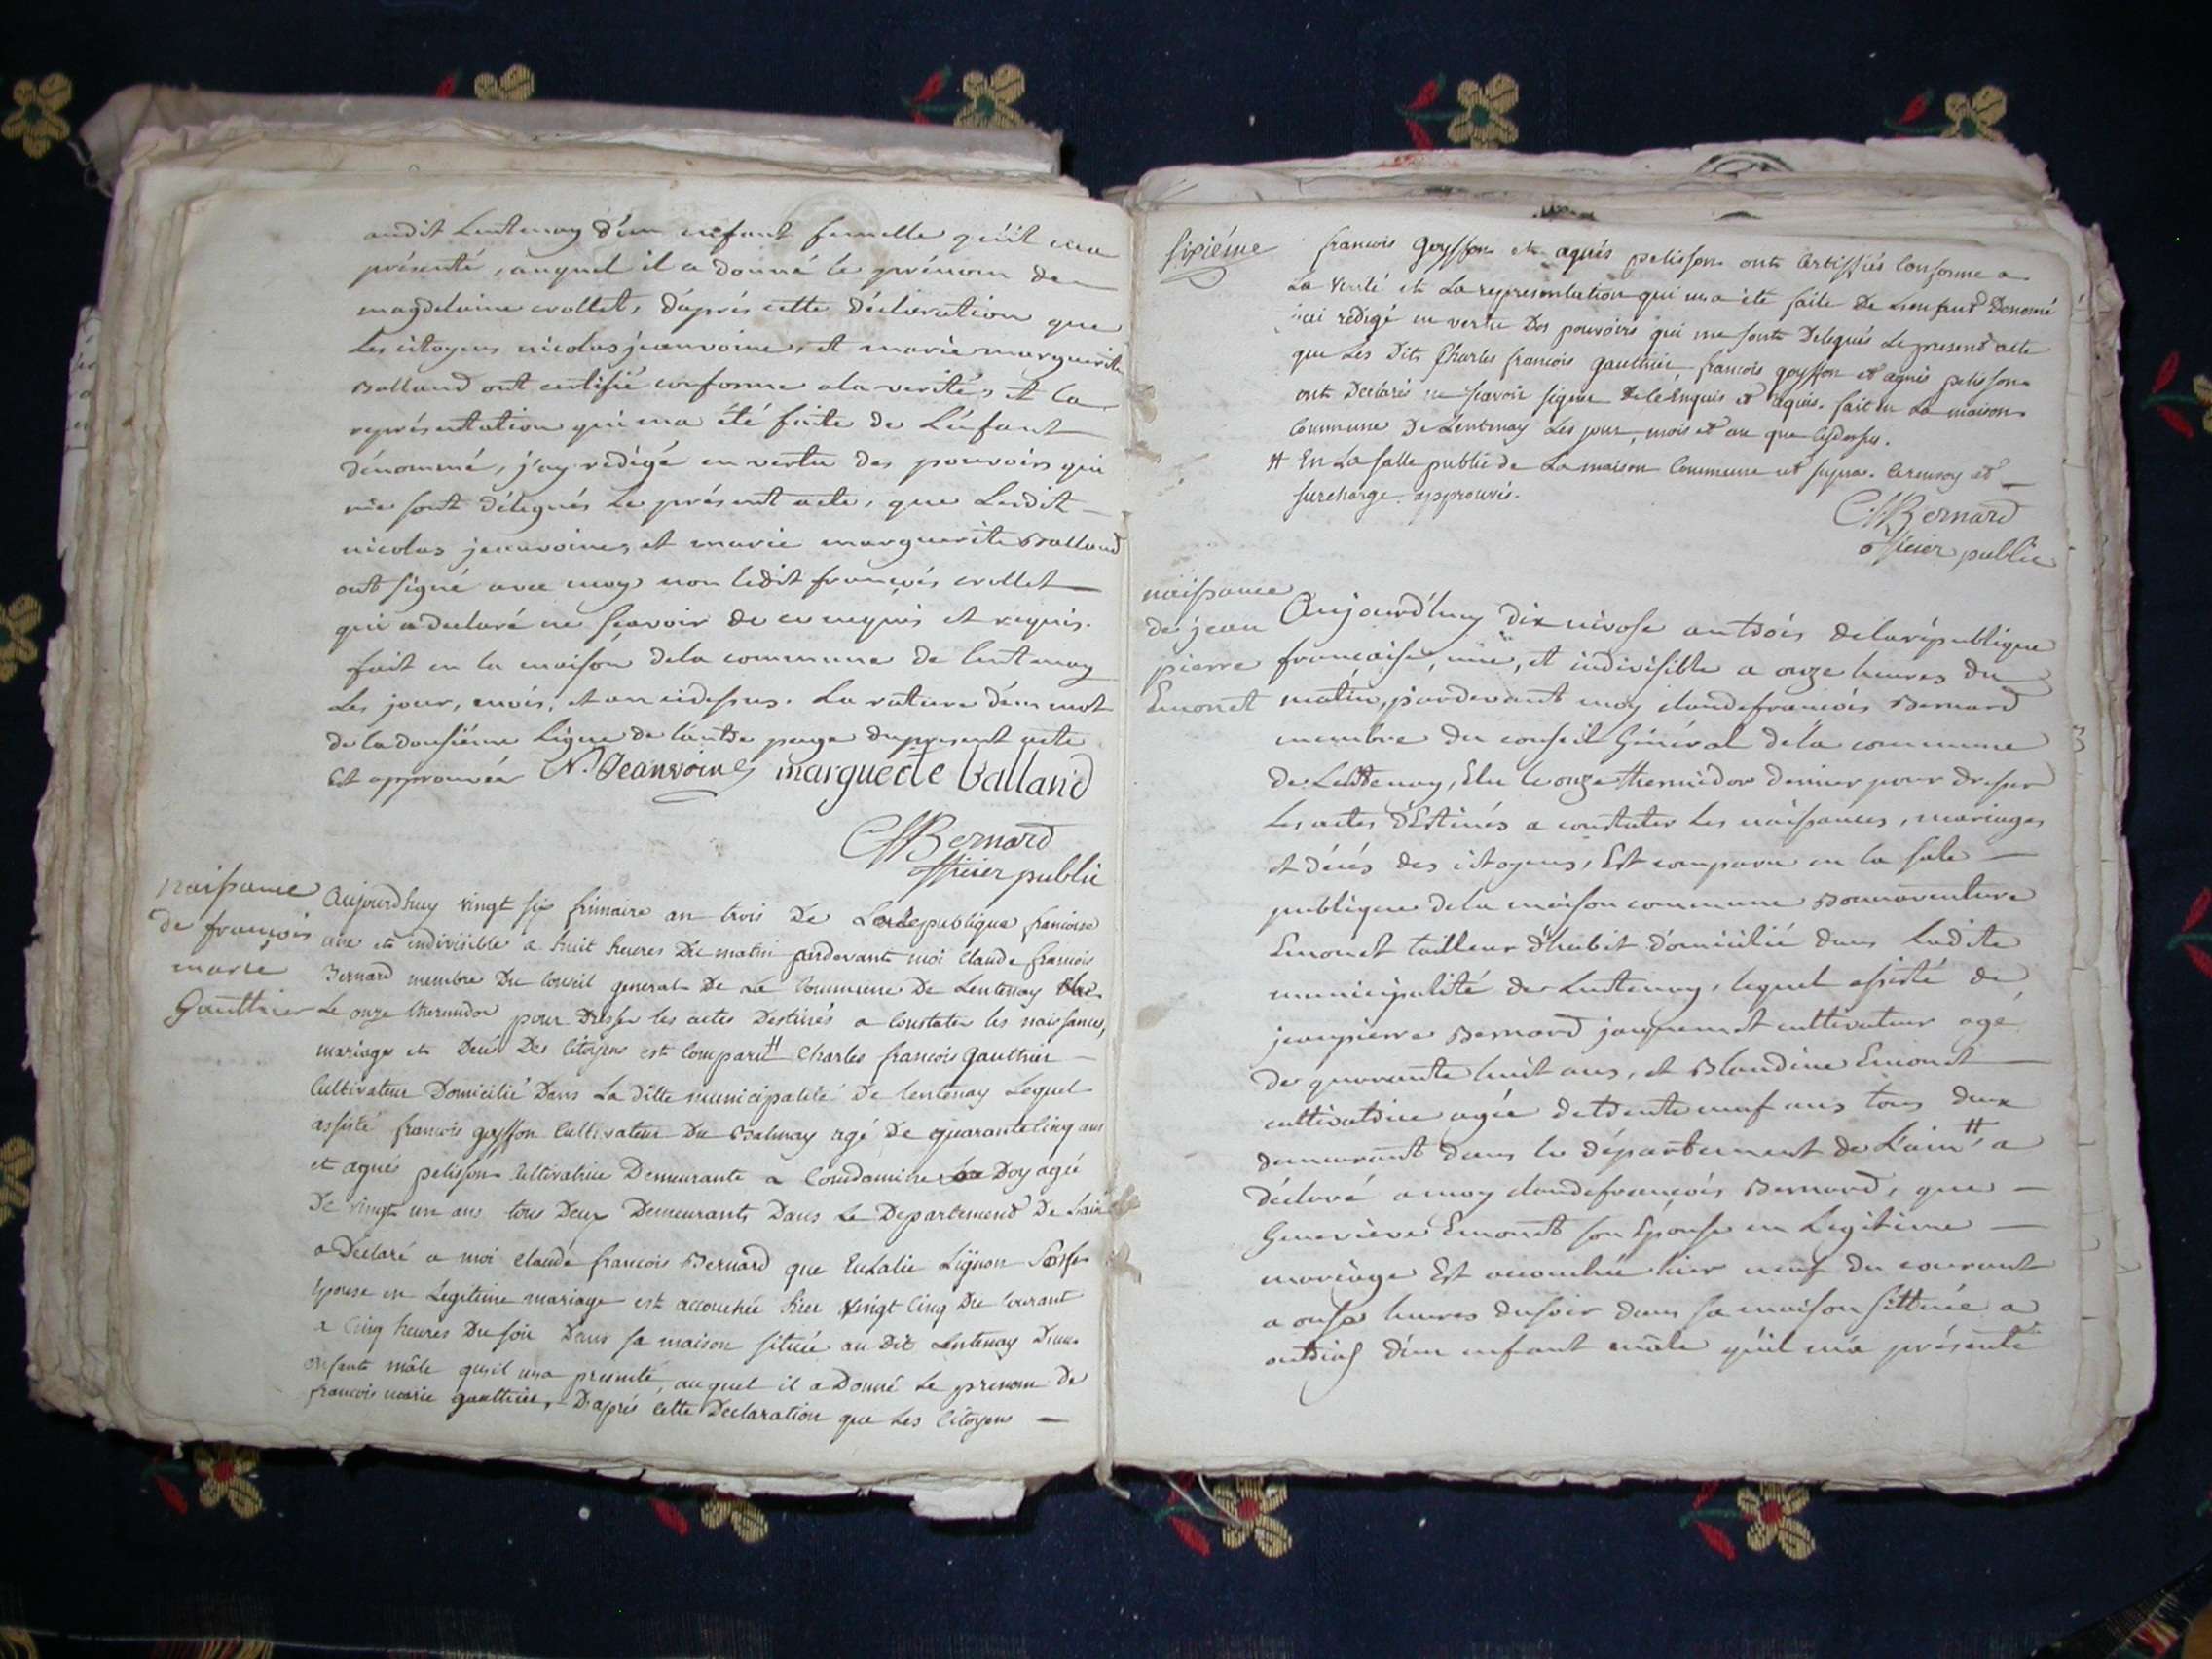 audit Lentenay d'un enfant femelle qu'il ma
présenté, auquel il a donné le prénom de
magdelaine crollet, d'après cette déclaration que
Les citoyens nicolas jeanvoine, et marie marguerite
Balland ont certifié conforme a la verité, et la
représentation qui ma été faite de L'enfant
dénommé, j'ay redigé en vertu des pouvoirs qui
me sont délegués Le présent acte, que Lesdit
nicolas jeanvoine, et marie marguerite Balland
ont signé avec moy non ledit françois crollet
qui a declaré ne sçavoir de ce enquis et requis.
fait en la maison de la commune de lentenay
Les jour, mois, et an cidessus. La rature d'un mot
de la dousiéme Ligne de l'autre page du present acte
Est approuvée N. Jeanvoine marguerite balland
CfBernard
officier public
naissance
de françois
marie
Gauthier
Aujourdhuy vingt six frimaire an trois De La Republique francoise
une et indivisible a huit heures Du matin pardevant moi Claude francois
Bernard membre Du Conseil general De La Commune De Lentenay Elu
Le onze thermidor pour Dresser les actes Destinés a Constater les naissances,
mariage et Decés Des Citoyens est Comparu # Charles francois Gauthier
Cultivateur Domicilié Dans La ditte municipalité De lentenay Lequel
assisté francois goyffon Cultivateur Du Balmay agé De quarante cinq ans
et agnés pelisson Cultivatrice Demeurante a Condamine La Doy agée
De vingt un ans tous Deux Demeurants Dans Le Departement De L'ain
a Declaré a moi Claude francois Bernard que Eulalie Lignon
Epouse en Legitime mariage est accouchée hier vingt Cinq Du Courant
a Cinq heures Du soir Dans sa maison située au Dit Lentenay D'un
enfant mâle qu'il m'a presenté, auquel il a Donné Le prenom De
francois marie gauthier, D'aprés cette Declaration que Les Citoyens
sixiéme
francois Goyffon et agnés pelisson ont Certiffiés Conforme a
La verité et La representation qui m'a été faite De L'enfant Denomé
j'ai redigé en vertu Des pouvoirs qui me sont Delegués Le present acte
que Les Dits Charles francois gauthier, francois goyffon et agnés pelisson
ont Declarés ne scavoir signer De le Enquis et requis. fait en La maison
Commune De Lentenay Les jour, mois et an que Cydessus.
# En La salle public de La maison Commune et renvoy et
surcharge approuvés.
CfBernard
officier public
naissance
de jean
pierre
Emonet
Aujourd'huy dix nivose an trois de la république
francaise, une, et indivisible a onze heures du
matin, pardevant moy claude francois Bernard
membre du conseil Général de la commune
de Lentenay, Elu le onze thermidor dernier pour dresser
Les actes d'Estinés a constater Les naissances, mariages
et décés des citoyens, Est comparu en la sale
publique de la maison commune Bonnaventure
Emonet tailleur d'habit domicilié dans Ladite
municipalité de Lentenay, lequel assisté de
jean pierre Bernard jaquemet cultivateur agé
de quarante huit ans, et Blandine Emonet
cultivatrice agée de trente neuf ans tous deux
demeurant dans le département de L'ain # a
déclaré a moy claude francois Bernard, que
Genevieve Emonet son Epouse en Legitime
mariage Est accouchée hier neuf du courant
a onse heures du soir dans sa maison sittuée a
d'un enfant mâle qu'il m'a présenté